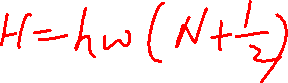 H=ħω(N+1/2)